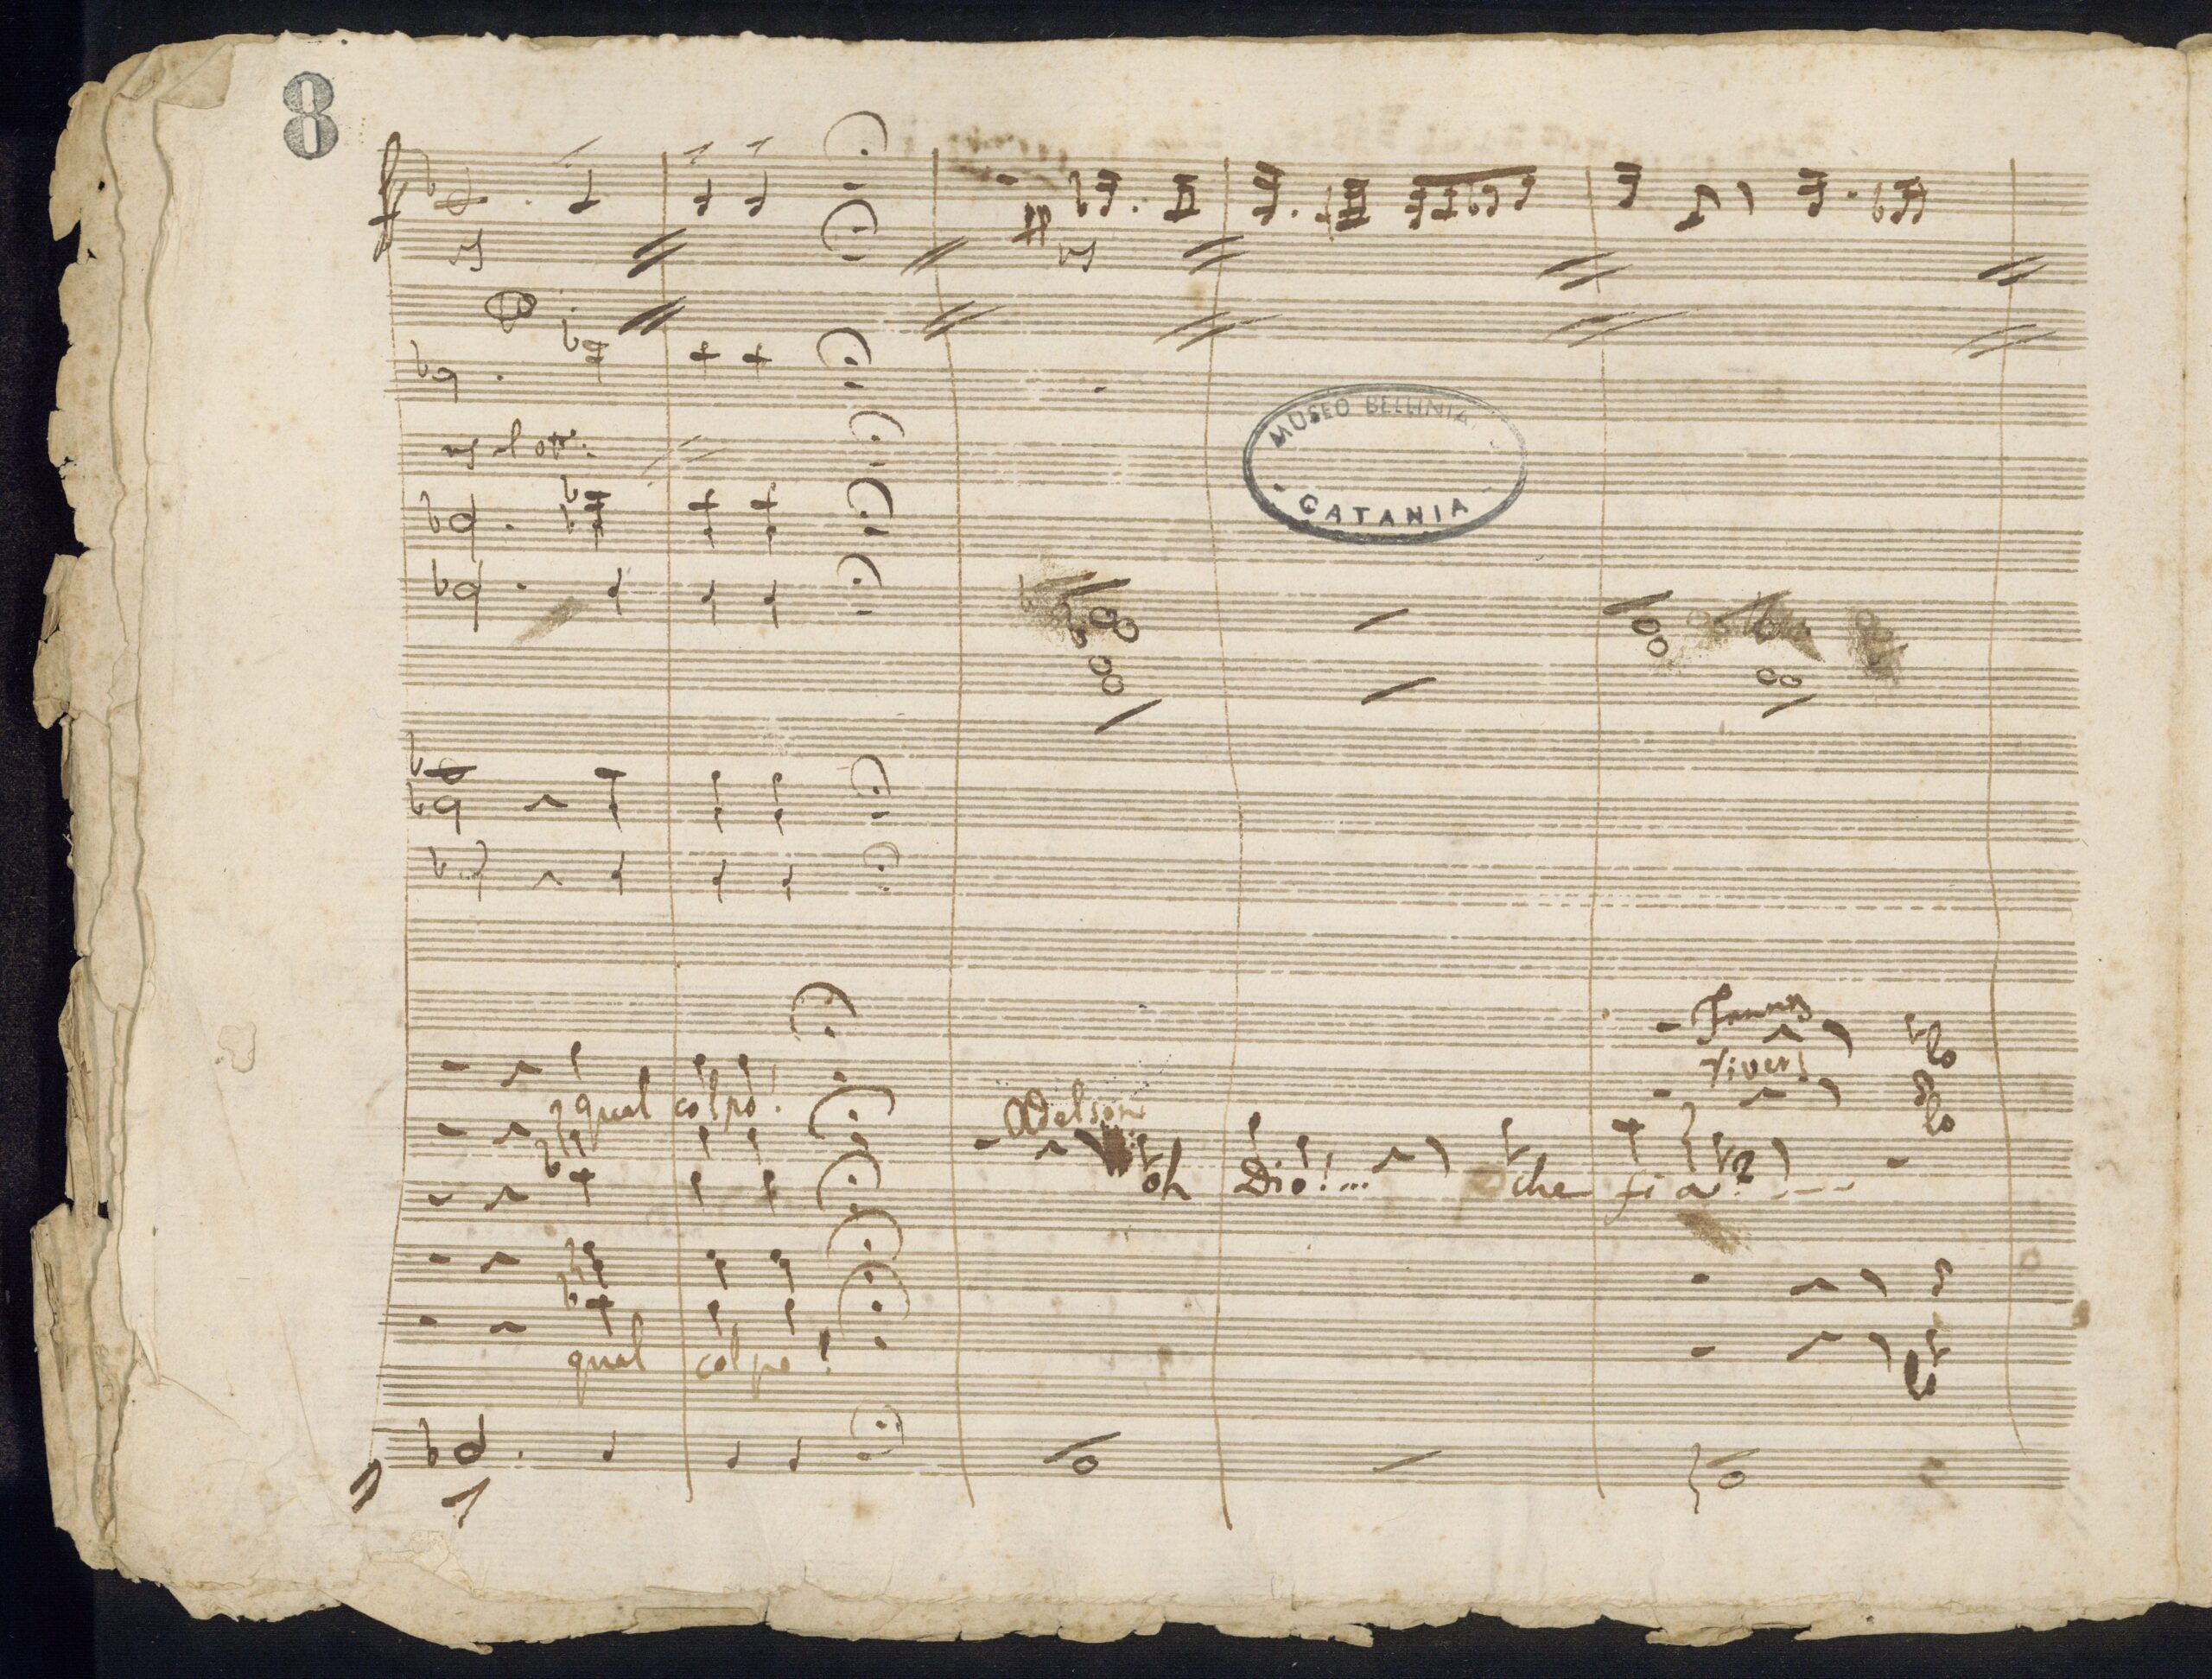 8
pp
MUSEO BELLINIA
CATANIA
Fanny
River!
qual colpo!
Adelson
oh Dio!... che fia?
qual colpo!